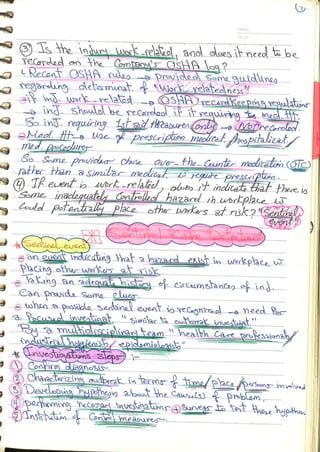 ③ Is the injury work-related, and does it need to be
recorded on the Company's OSHA log?
Recent OSHA rules → provided some guidlines
regarding determinat. of "Work relatedness"
If inj. work-related → OSHA recordkeeping regulations
→ inj. should be recorded if it requiring to med. ttt.
So inj. requiring 1st aid measures only → Not recorded
Med. ttt → use of prescription medicat., hospitalizat.,
med. procedures
So some provider chose over-the-counter medication (OTC)
rather than a similar medicat. require prescription.
④ If event is work-related, does it indicate that there is
some inadequately controlled hazard in workplace
could potentially place other workers at risk? (Sentinel event)
Sentinel
Sentinel event
an event indicating that a hazard exist in workplace
placing other workers at risk
Taking an adequate history of circumstances of inj.
Can provide some clues
when a possible sentinel event is recognized → need for
a focused investigat. "similar to outbreak investigat."
By a multidisciplinary team "health care professionals/
industrial hygienists/epidemiologists"
Investigations steps :-
① Confirm diagnosis
② Characterizing outbreak in terms of time/place/persons involved
③ Developing hypothesis about the cause(s) of problem.
④ performing necessary investigations + surveys to test those hypothesis
⑤ Institution of control measures